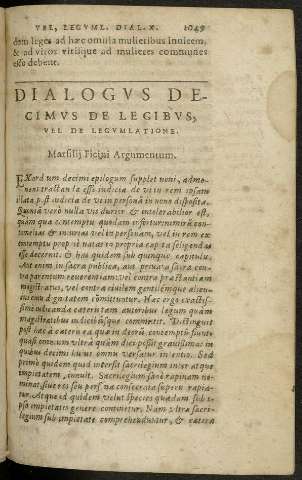 VEL, LEGVML. DIAL. X. 1049
dem leges ad hæc omnia mulieribus inuicem,
& ad viros vtrisque ad mulieres communes
esse debent.
DIALOGVS DE-
CIMVS DE LEGIBVS,
VEL DE LEGVMLATIONE.
Marsilij Ficini Argumentum.
EXord um decimi epilogum supplet noni, admo-
nens tractanda esse iudicia de vi in rem ipsam
illata post iudicia de vi in personã in nono disposita.
nulla vis durior & intolerabilior est,
quàm quæ contemptu quodam
& iniurias vel in personam, vel in rem ex
contemptu
esse decernit. & has quidem sub quinque capitulis.
Aut enim in sacra publica, aut priuata sacra con-
tra parentum reuerentiam, vel contra
magistratus, vel contra ciuilem
dignitatem cõmittuntur. Hæc ergo exactis-
simè iudicanda cæterùm autoribus legum quàm
magistratibus iudicibusque commisit. Distinguit
post hæc à cæteris ea quæ in deorũ contemptũ sunt,
quasi omnium vltrà quàm dici possit grauissima: in
quibus decimi huius omnis versatur intentio. Sed
primò quidem quid intersit sacrilegium inter atque
impietatem, Sacrilegium sanè rapinam no-
minat, siue res seu persona consecrata superis rapia-
tur. Atque id quidem velut species quædam sub i-
psa impietatis genere continetur. Nam vltra sacri-
legium sub impietate comprehenduntur, & cætera